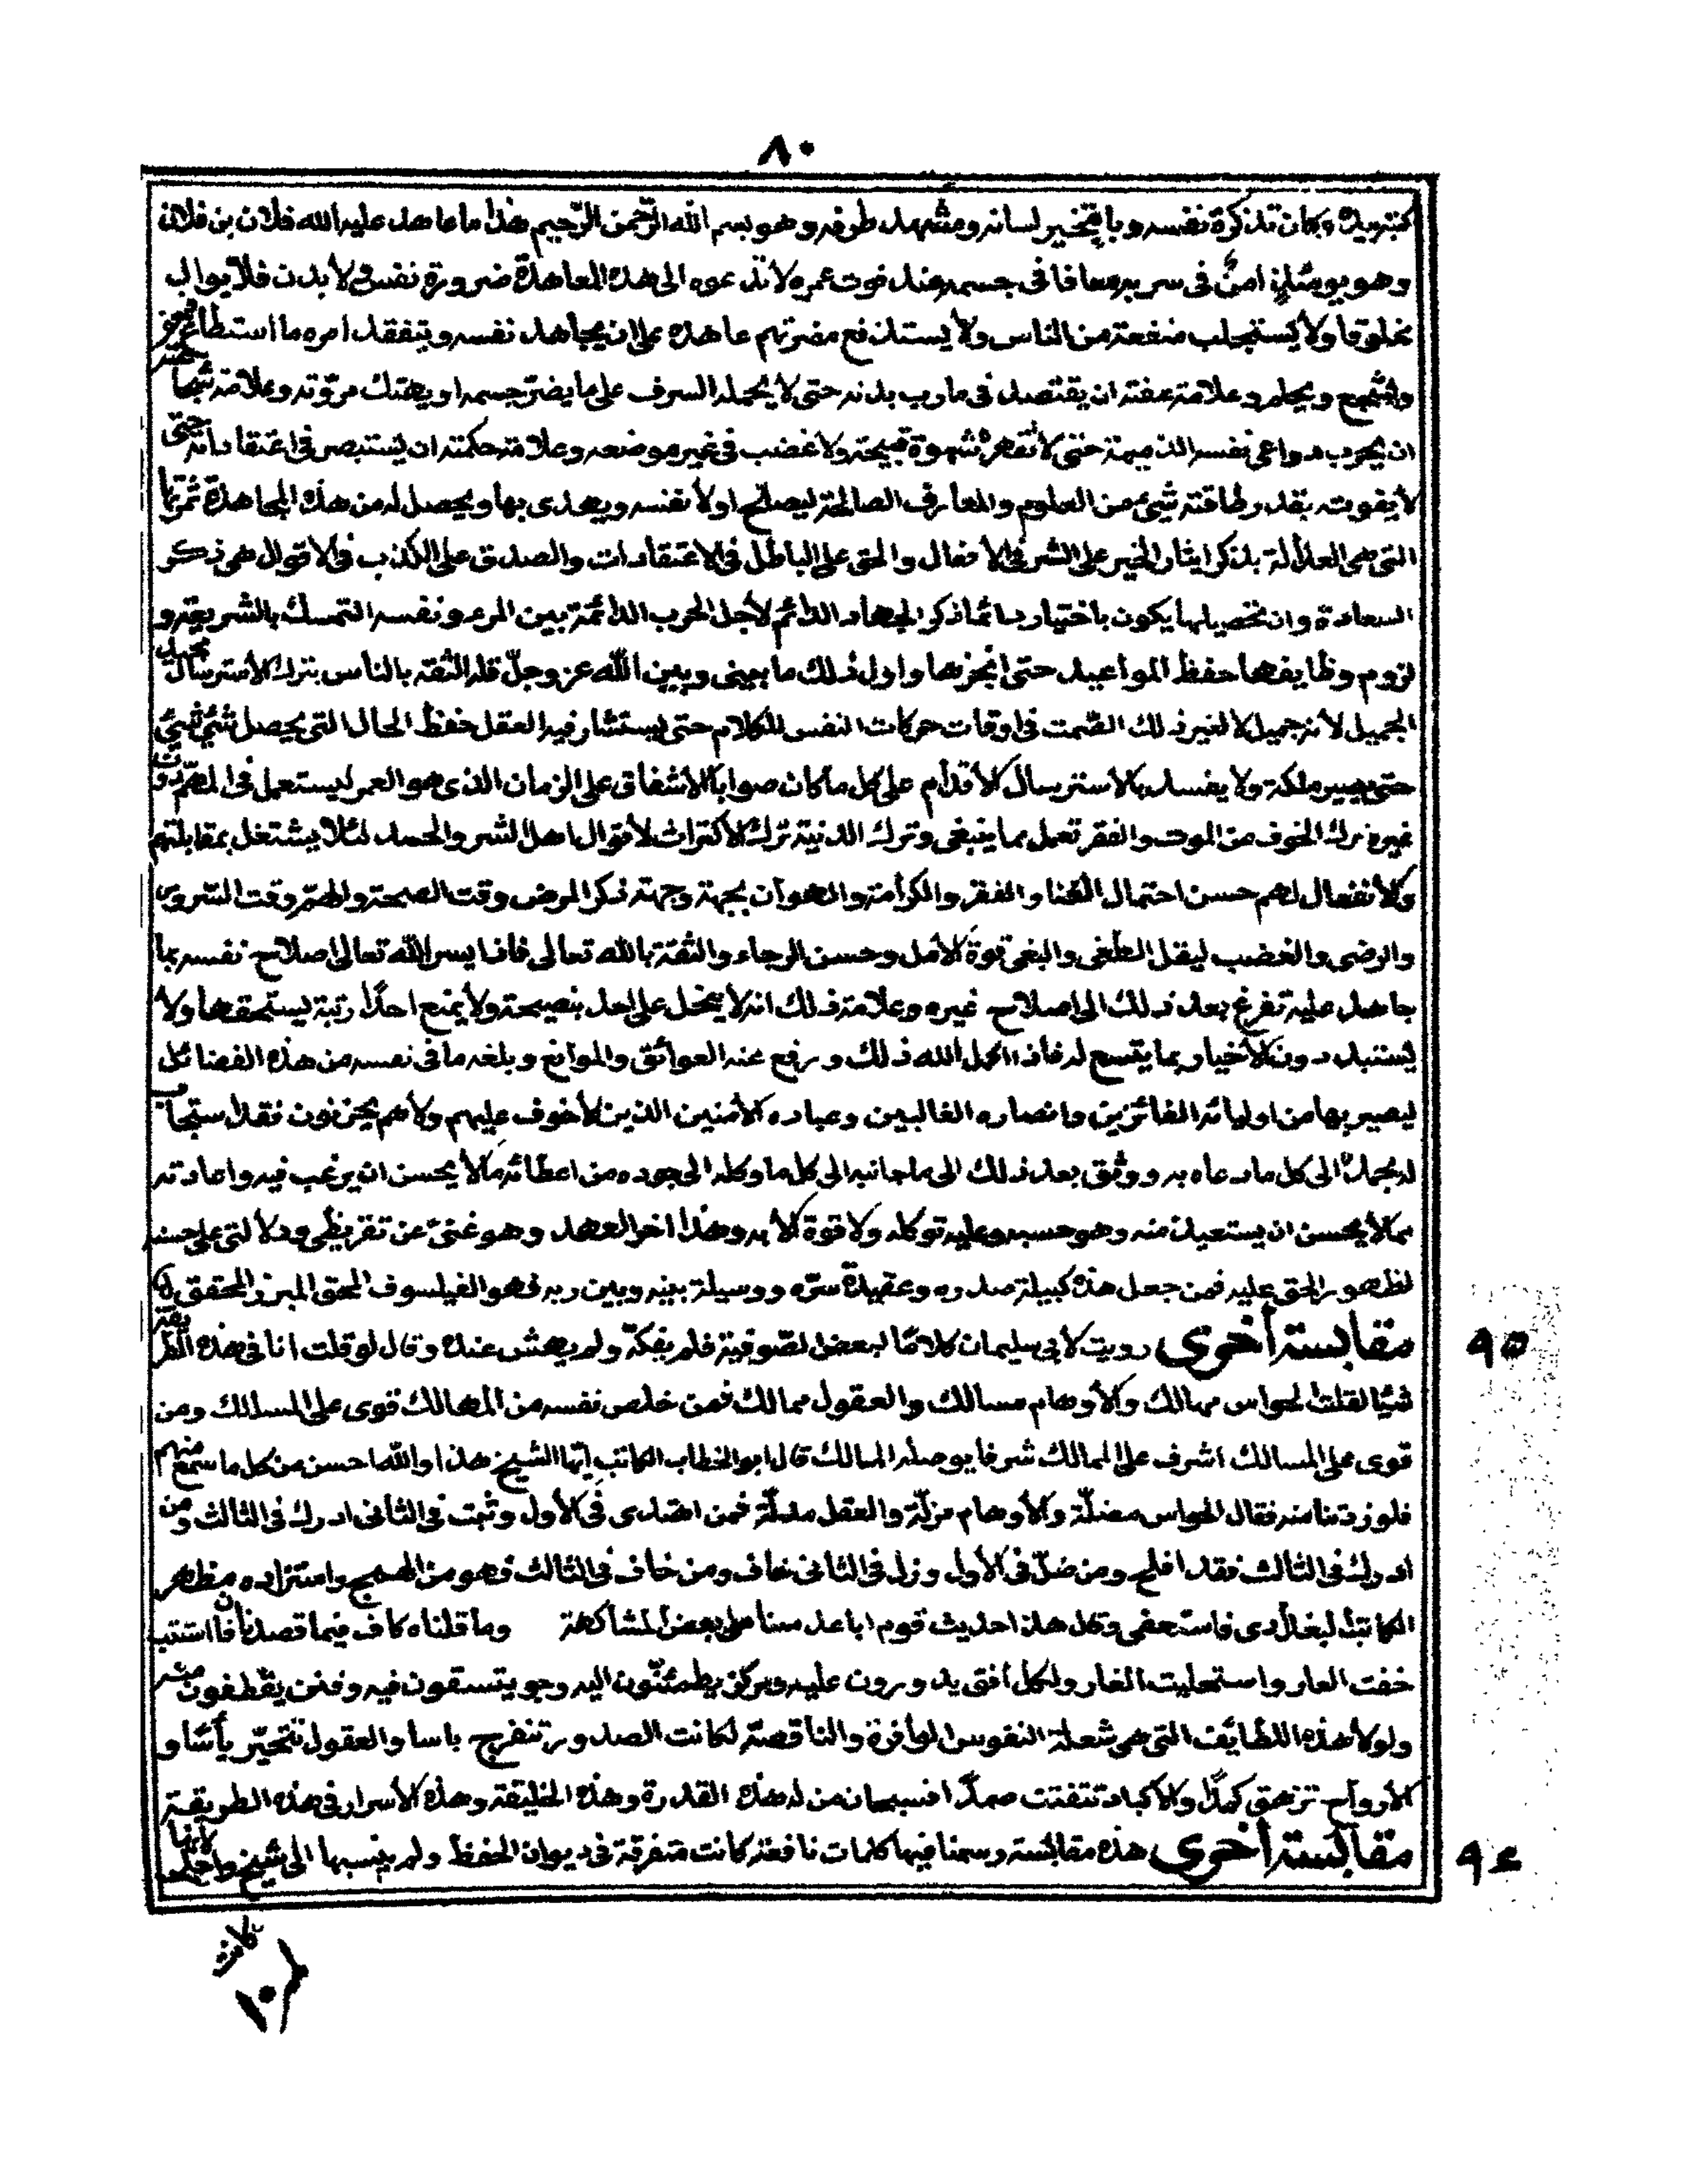 ٨٠
كتبه بيده وكان تذكرة نفسه و لسانه ومشهد طرفه وهو بسم الله الرحمن الرحيم هذا ما عاهد عليه الله فلان بن فلان
وهو يومئذ امن في سربه معافا في جسمه عنده قوت عمره لا تدعوه الى هذه المعاهدة ضرورة نفس ولا بدن فلا يوالي
مخلوقا ولا يستجلب منفعة من الناس ولا يستدفع مضرتهم عاهده على ان يجاهد نفسه ويتفقد امره ما استطاع فيعف
ويشجع ويحلم وعلامة عفته ان يقتصد في مارب بدنه حتى لا يحمله السرف على ما يضر جسمه او يهتك مروته وعلامة
ان يحرب دواعي نفسه الذميمة حتى لا تقهره شهوة قبيحة ولا غضب في غير موضعه وعلامة حكمته ان يستبصر في اعتقاداته حتى
لا يفوته بقدر طاقته شيئ من العلوم والمعارف الصالحة ليصلح اولا نفسه ويهدى بها ويحصل له من هذه المجاهدة ثمرتها
التى هى العدالة بذكر ايثار الخير على الشر في الافعال والحق على الباطل في الاعتقادات والصدق على الكذب في الاقوال هي ذكر
السعادة وان تحصيلها يكون باختيار دائما ذكر الجهاد الدائم لأجل الحرب الدائمة بين المرء ونفسه التمسك بالشريعة و
لزوم وظايفها حفظ المواعيد حتى انجزها واول ذلك ما بيني وبين الله عز وجل قلة الثقه بالناس بترك الأسترسال محبة
الجميل لأنه جميل لا لغير ذلك الصمت في اوقات حركات النفس للكلام حتى يستشار فيه العقل حفظ الحال التى يحصل شئ شئ
حتى يصير ملكة ولا يفسد بالاسترسال الأقدام على كل ما كان صوابا الاشفاق على الزمان الذى هو العمر ليستعمل في المهم دون
غيره ترك الخوف من الموت والفقر تعمل بما ينبغى وترك الدنية ترك الأكتراث لأقوال اهل الشر والحسد لئلا يشتغل بمقابلتهم
والأنفعال لهم حسن احتمال الغنا والفقر والكرامة والهوان بجهة وجهة ذكر المرض وقت الصحة والهم وقت السرور
والرضى والغضب ليقل الطغى والبغى قوة الأمل وحسن الرجاء والثقة بالله تعالى فاذا يسر الله تعالى اصلاح نفسه بما
جاهد عليه تفرغ بعد ذلك الى اصلاح غيره وعلامة ذلك انه لا يبخل على احد بنصيحة ولا يمنع احدا رتبة يستحقها ولا
يستبد دون الأخيار بما يتسع له فاذا اكمل الله ذلك ورفع عنه العوائق والموانع وبلغه ما في نفسه من هذه الفضائل
ليصير بها من اوليائه الفائزين وانصاره الغالبين وعباده الأمنين الذين لا خوف عليهم ولا هم يحزنون فقد استجاب
له بحمده الى كل ما دعاه به ووثق بعد ذلك الى ما جانبه الى كل ما وكله الى جوده من اعطائه ما لا يحسن ان يرغب فيه واعادته
مما لا يحسن ان يستعيذ منه وهو حسبه وعليه توكله ولا قوة الا به وهذا اخر العهد وهو غنى عن تقريظى ودلالتى على حسنه
لظهور الحق عليه فمن جعل هذه صدره وعقيدة سره ووسيلة بينه وبين ربه فهو الفيلسوف المحق المبرز المحقق
٩٥
مقابسة أخرى رويت لأبي سليمان كلاما لبعض الصوفية فلم يفكه ولم يهش عنده وقال لو قلت انا في هذه الطريقة
شيئا لقلت الحواس مهالك والأوهام مسالك والعقول ممالك فمن خلص نفسه من المهالك قوى على المسالك ومن
قوى على المسالك اشرف على الممالك شرفا يوصله المالك قال ابو الخطاب الكاتب ايها الشيخ هذا والله احسن من كل ما سمع منهم
فلو زدتنا منه فقال الحواس مضلة والأوهام مزلة والعقل مدلة فمن اهتدى في الأول وثبت في الثانى ادرك في الثالث ومن
ادرك في الثالث فقد افلح ومن ضل في الأول وزل في الثانى خاف ومن خاف في الثالث فهو من الهمج واستزاده مظهر
الكاتب البغدادى فاستعفى وقال هذا حديث قوم اباعد منا على بعض المشاكهة وما قلناه كاف فيما قصدنا فان استتب
خفت العار واستحليت الغار ولكل افق يدورون عليه ومركز يطمئنون اليه وجو يتسقون فيه وفنن يقطفون منه
ولولا هذه اللطايف التى هى شعلة النفوس الوافرة والناقصة لكانت الصدور تنفرج باسا والعقول تتحير يأسا و
الأرواح تزهق كمدا والاكباد تتفتت صمدا فسبحان من له هذه القدرة وهذه الخليقة وهذه الأسرار في هذه الطريقة
٩٤
مقابسة أخرى هذه مقابسة رسمنا فيها كلمات نافعة كانت متفرقة في ديوان الحفظ ولم ينسبها الى شيخ واحد لأنها